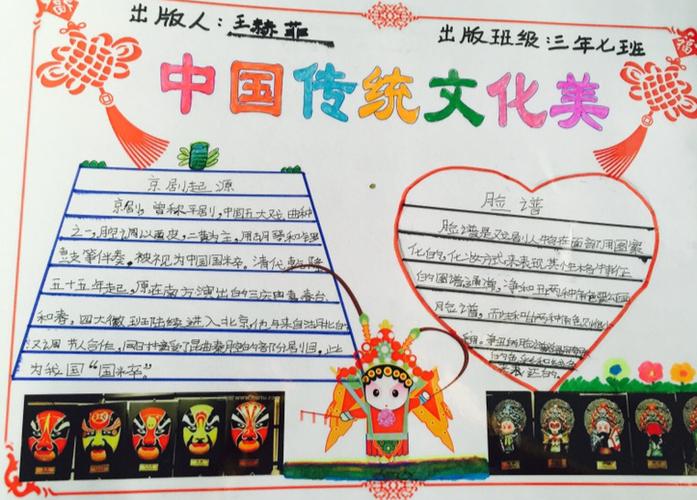 出版人：王赫菲
出版班级：三年七班
中国传统文化美
京剧起源
京剧，曾称平剧，中国五大戏曲种
之一，腔调以西皮，二黄为主，用胡琴和锣
鼓等伴奏，被视为中国国粹。清代乾隆
五十五年起，原在南方演出的三庆四喜春台
和春，四大徽班陆续进入北京，他与来自湖北的
汉调艺人合作，同时接受了昆曲秦腔的部分剧目，
为我国“国粹。”
脸谱
脸谱是戏剧人物在面部用图案
化的化妆方式来表现其性格特征
的图谱通演，净和丑两种角色要勾画
脸谱，而生和旦两种角色